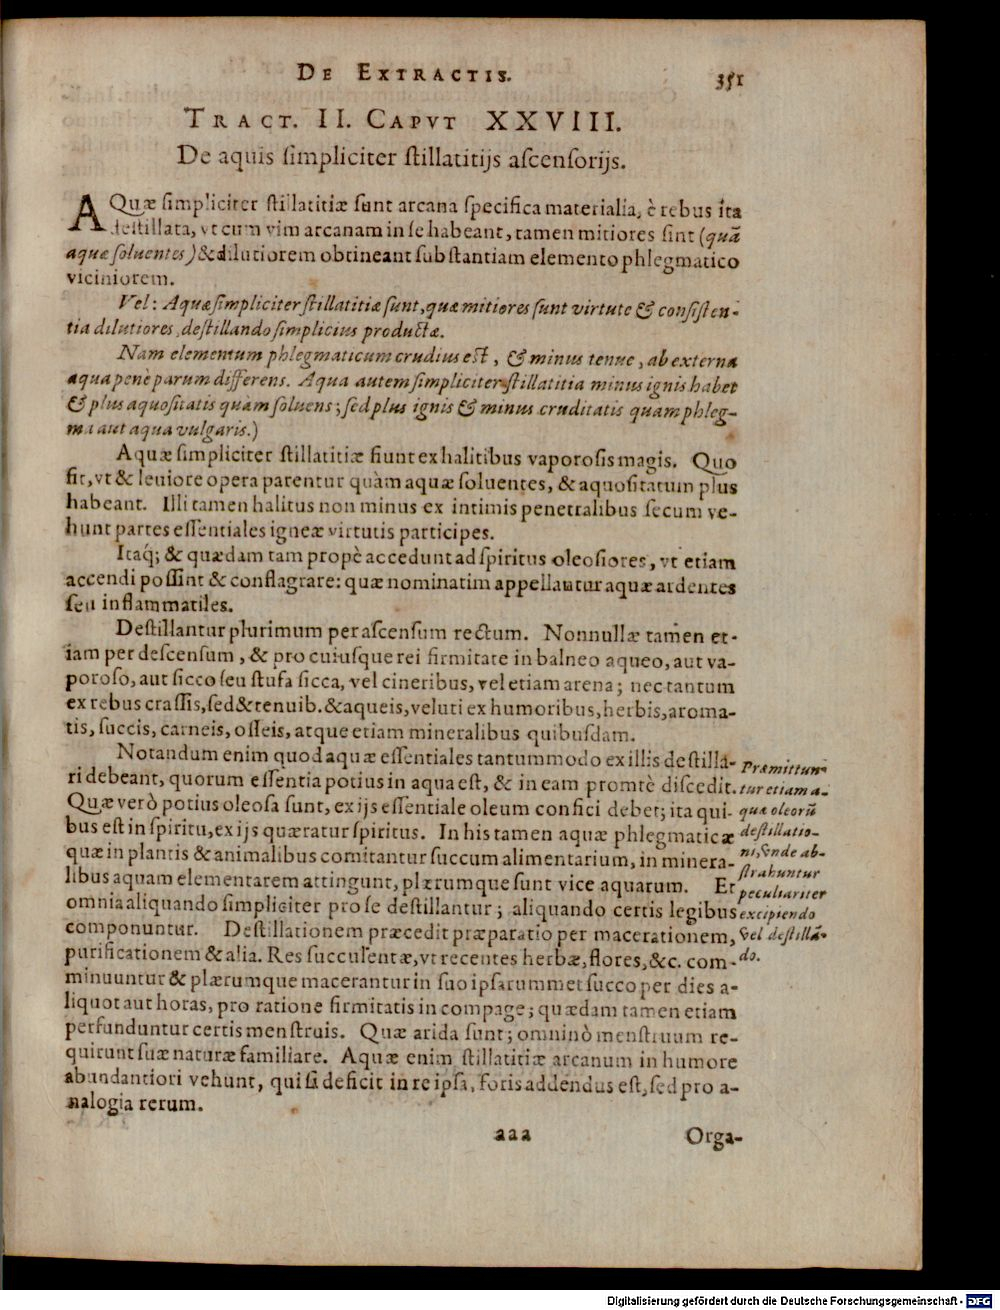 DE EXTRACTIS.
351
TRACT. II. CAPVT XXVIII.
De aquis ſimpliciter ſtillatitijs aſcenſorijs.
AQuæ ſimpliciter ſtillatitiæ ſunt arcana ſpecifica materialia, è rebus ita
deſtillata, vt cum vim arcanam in ſe habeant, tamen mitiores ſint (quã
aquæ ſoluentes) & dilutiorem obtineant ſubſtantiam elemento phlegmatico
viciniorem.
Vel: Aquæ ſimpliciter ſtillatitiæ ſunt, quæ mitiores ſunt virtute & conſiſten-
tia dilutiores, deſtillando ſimplicius productæ.
Nam elementum phlegmaticum crudius eſt, & minus tenue, ab externa
aqua penè parum differens. Aqua autem ſimpliciter ſtillatitia minus ignis habet
& plus aquoſitatis quàm ſoluens; ſed plus ignis & minus cruditatis quam phleg-
ma aut aqua vulgaris.)
Aquæ ſimpliciter ſtillatitiæ fiunt ex halitibus vaporoſis magis. Quo
fit, vt & leuiore opera parentur quàm aquæ ſoluentes, & aquoſitatum plus
habeant. Illi tamen halitus non minus ex intimis penetralibus ſecum ve-
hunt partes eſſentiales igneæ virtutis participes.
Itaq́; & quædam tam propè accedunt ad ſpiritus oleoſiores, vt etiam
accendi poſſint & conflagrare: quæ nominatim appellantur aquæ ardentes
ſeu inflammatiles.
Deſtillantur plurimum per aſcenſum rectum. Nonnullæ tamen et-
iam per deſcenſum, & pro cuiuſque rei firmitate in balneo aqueo, aut va-
poroſo, aut ſicco ſeu ſtufa ſicca, vel cineribus, vel etiam arena; nec tantum
ex rebus craſſis, ſed & tenuib. & aqueis, veluti ex humoribus, herbis, aroma-
tis, ſuccis, carneis, oſſeis, atque etiam mineralibus quibuſdam.
Notandum enim quod aquæ eſſentiales tantummodo ex illis deſtilla-
ri debeant, quorum eſſentia potius in aqua eſt, & in eam promtè diſcedit.
Quæ verò potius oleoſa ſunt, ex ijs eſſentiale oleum confici debet; ita qui-
bus eſt in ſpiritu, ex ijs quæratur ſpiritus. In his tamen aquæ phlegmaticæ
quæ in plantis & animalibus comitantur ſuccum alimentarium, in minera-
libus aquam elementarem attingunt, plærumque ſunt vice aquarum. Et
omnia aliquando ſimpliciter pro ſe deſtillantur; aliquando certis legibus
componuntur. Deſtillationem præcedit præparatio per macerationem,
purificationem & alia. Res ſucculentæ, vt recentes herbæ, flores, &c. com-
minuuntur & plærumque macerantur in ſuo ipſarummet ſucco per dies a-
liquot aut horas, pro ratione firmitatis in compage; quædam tamen etiam
perfunduntur certis menſtruis. Quæ arida ſunt; omninò menſtruum re-
quirunt ſuæ naturæ familiare. Aquæ enim ſtillatitiæ arcanum in humore
abundantiori vehunt, qui ſi deficit in re ipſa, foris addendus eſt, ſed pro a-
nalogia rerum.
Præmittun-
tur etiam a-
quæ oleorũ
deſtillatio-
ni, vnde ab-
ſtrahuntur
peculiariter
excipiendo
vel deſtillã-
do.
aaa
Orga-
Digitalisierung gefördert durch die Deutsche Forschungsgemeinschaft - DFG